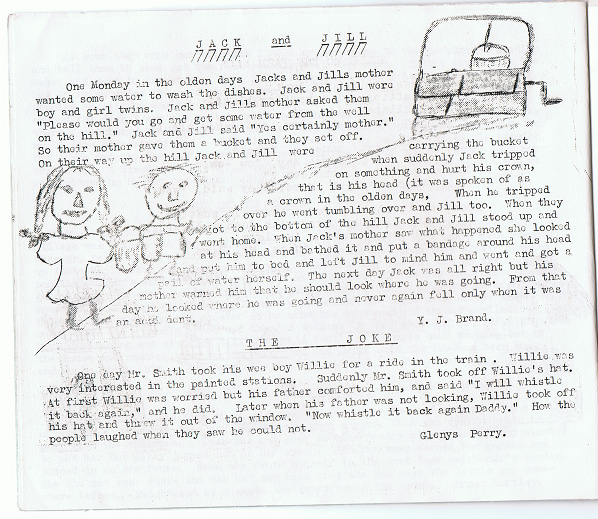 JACK and JILL
One Monday in the olden days Jacks and Jills mother
wanted some water to wash the dishes. Jack and Jill were
boy and girl twins. Jack and Jills mother asked them
"Please would you go and get some water from the well
on the hill." Jack and Jill said "Yes certainly mother."
So their mother gave them a bucket and they set off.
On their way up the hill Jack and Jill were carrying the bucket
when suddenly Jack tripped
on something and hurt his crown,
that is his head (it was spoken of as
a crown in the olden days, When he tripped
over he went tumbling over and Jill too. When they
got to the bottom of the hill Jack and Jill stood up and
went home. When Jack's mother saw what happened she looked
at his head and bathed it and put a bandage around his head
and put him to bed and left Jill to mind him and went and got a
pail of water herself. The next day Jack was all right but his
mother warned him that he should look where he was going. From that
day he looked where he was going and never again fell only when it was
an accident.
Y. J. Brand.
THE JOKE
One day Mr. Smith took his wee boy Willie for a ride in the train. Willie was
very interested in the painted stations. Suddenly Mr. Smith took off Willie's hat.
At first Willie was worried but his father comforted him, and said "I will whistle
it back again," and he did. Later when his father was not looking, Willie took off
his hat and threw it out of the window. "Now whistle it back again Daddy." How the
people laughed when they saw he could not.
Glenys Perry.